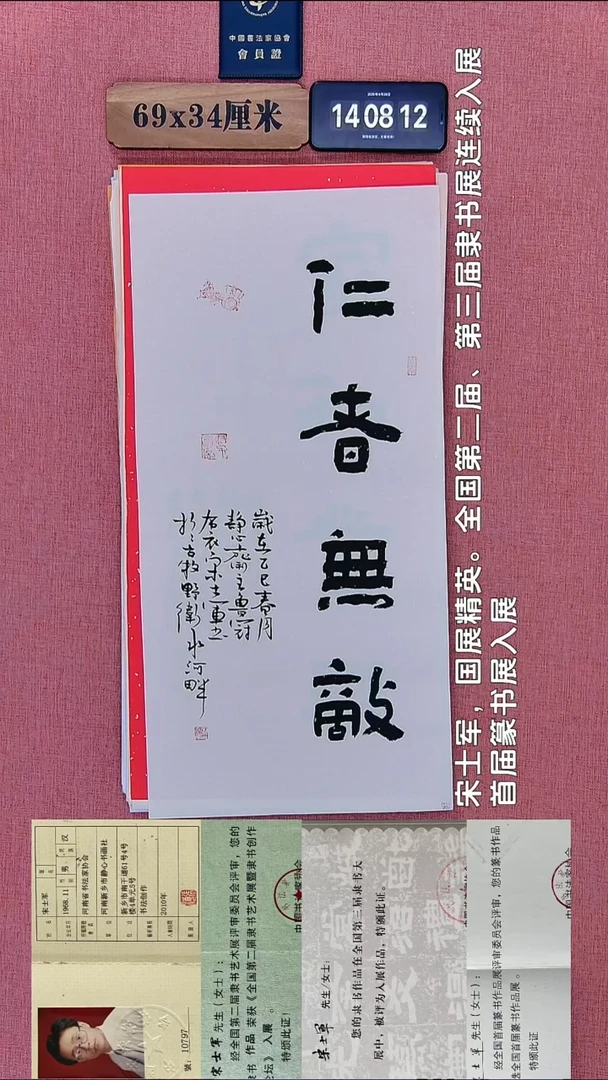 中國書法家協會
會員證
69x34厘米
14 08 12
仁者無敵
歲在乙巳春月
静心齋主曹冠
右衣宋士軍書
於古牧野衛水河畔
宋士军，国展精英。全国第二届、第三届隶书展连续入展
首届篆书展入展
宋士军
1968.11
男
汉
河南省书法家协会
河南新乡市静心书画社
新乡市南干道61号4号
楼4单元5号
书法创作
2010年
號：10797
宋士军 先生（女士）：
经全国第二届隶书艺术展评审委员会评审，您的
隶书 作品 荣获《全国第二届隶书艺术展暨隶书创作
论坛》入展 。
特颁此证！
宋士军 先生/女士：
您的隶书作品在全国第三届隶书大
展中，被评为入展作品，特颁此证。
士军 先生（女士）：
经全国首届篆书作品展评审委员会评审，您的篆书作品
选全国首届篆书作品展。
特颁此证